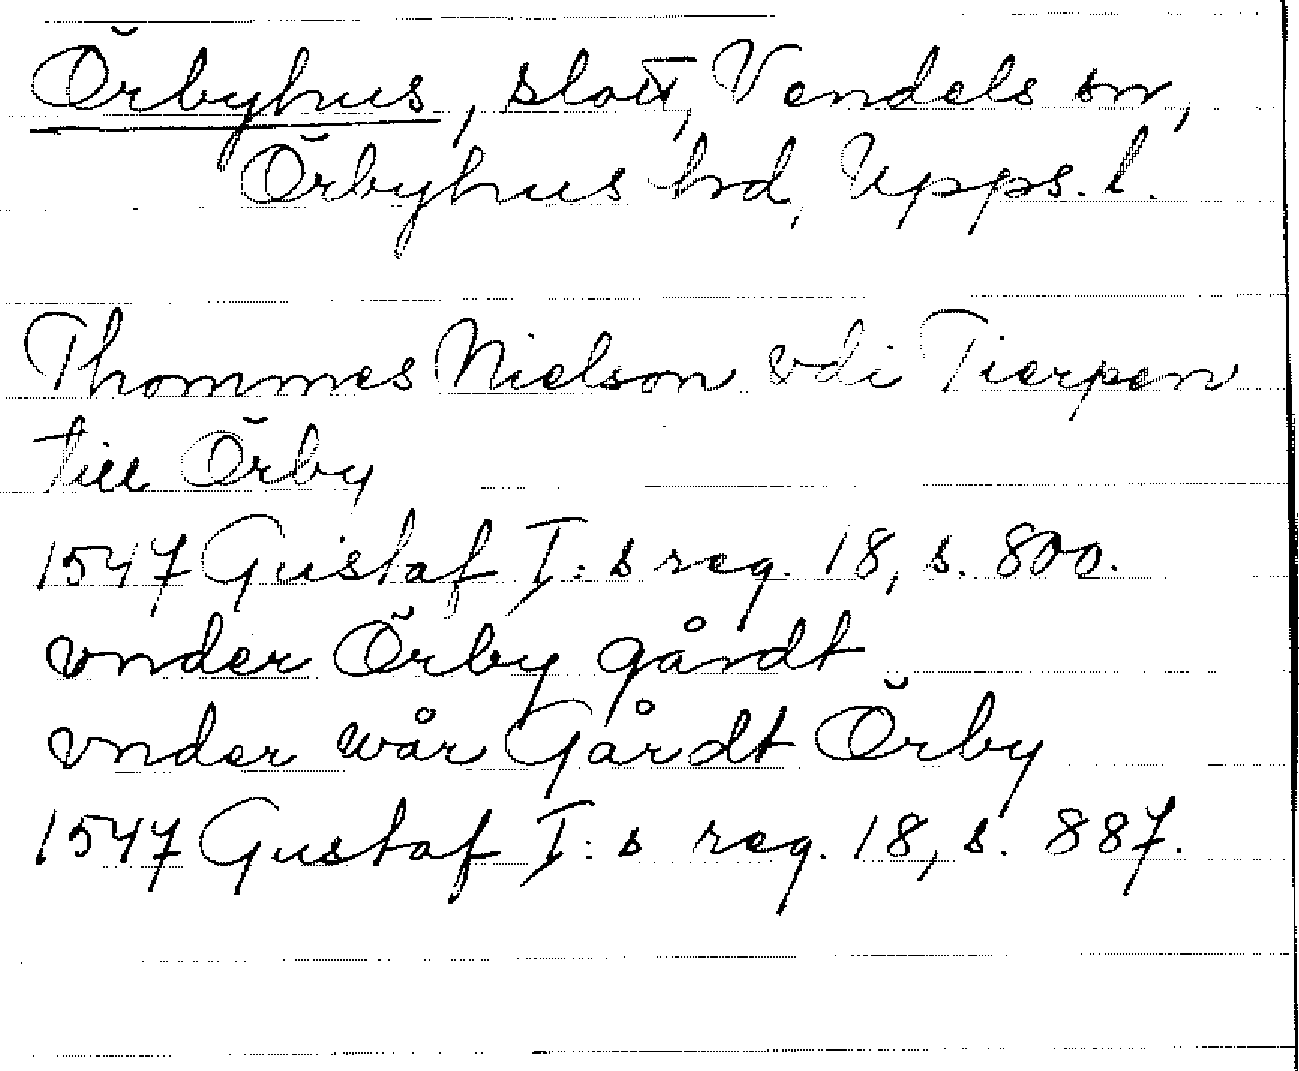 Örbyhus, slott, Vendels sn,
Örbyhus hd, Upps. l.
Thommes Nielson vdi Tierpen
till Örby
1547 Gustaf I: s reg. 18, s. 800.
vnder Örby gårdt
vnder wår Gårdt Örby
1547 Gustaf I: s reg. 18, s. 887.